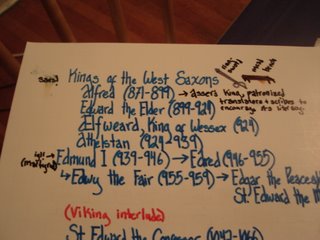 Kings of the West Saxons
Alfred (871-899) → Asser's King, patronized translators + scribes to encourage its literacy.
Edward the Elder (899-924)
Ælfweard, King of Wessex (924)
Athelstan (924-939)
Edmund I (939-946) → Edred (946-955)
↳ Edwy the Fair (955-959) → Edgar the Peace
St. Edward the M
(Viking interlude)
St. Edward the Confessor (1042-1066)